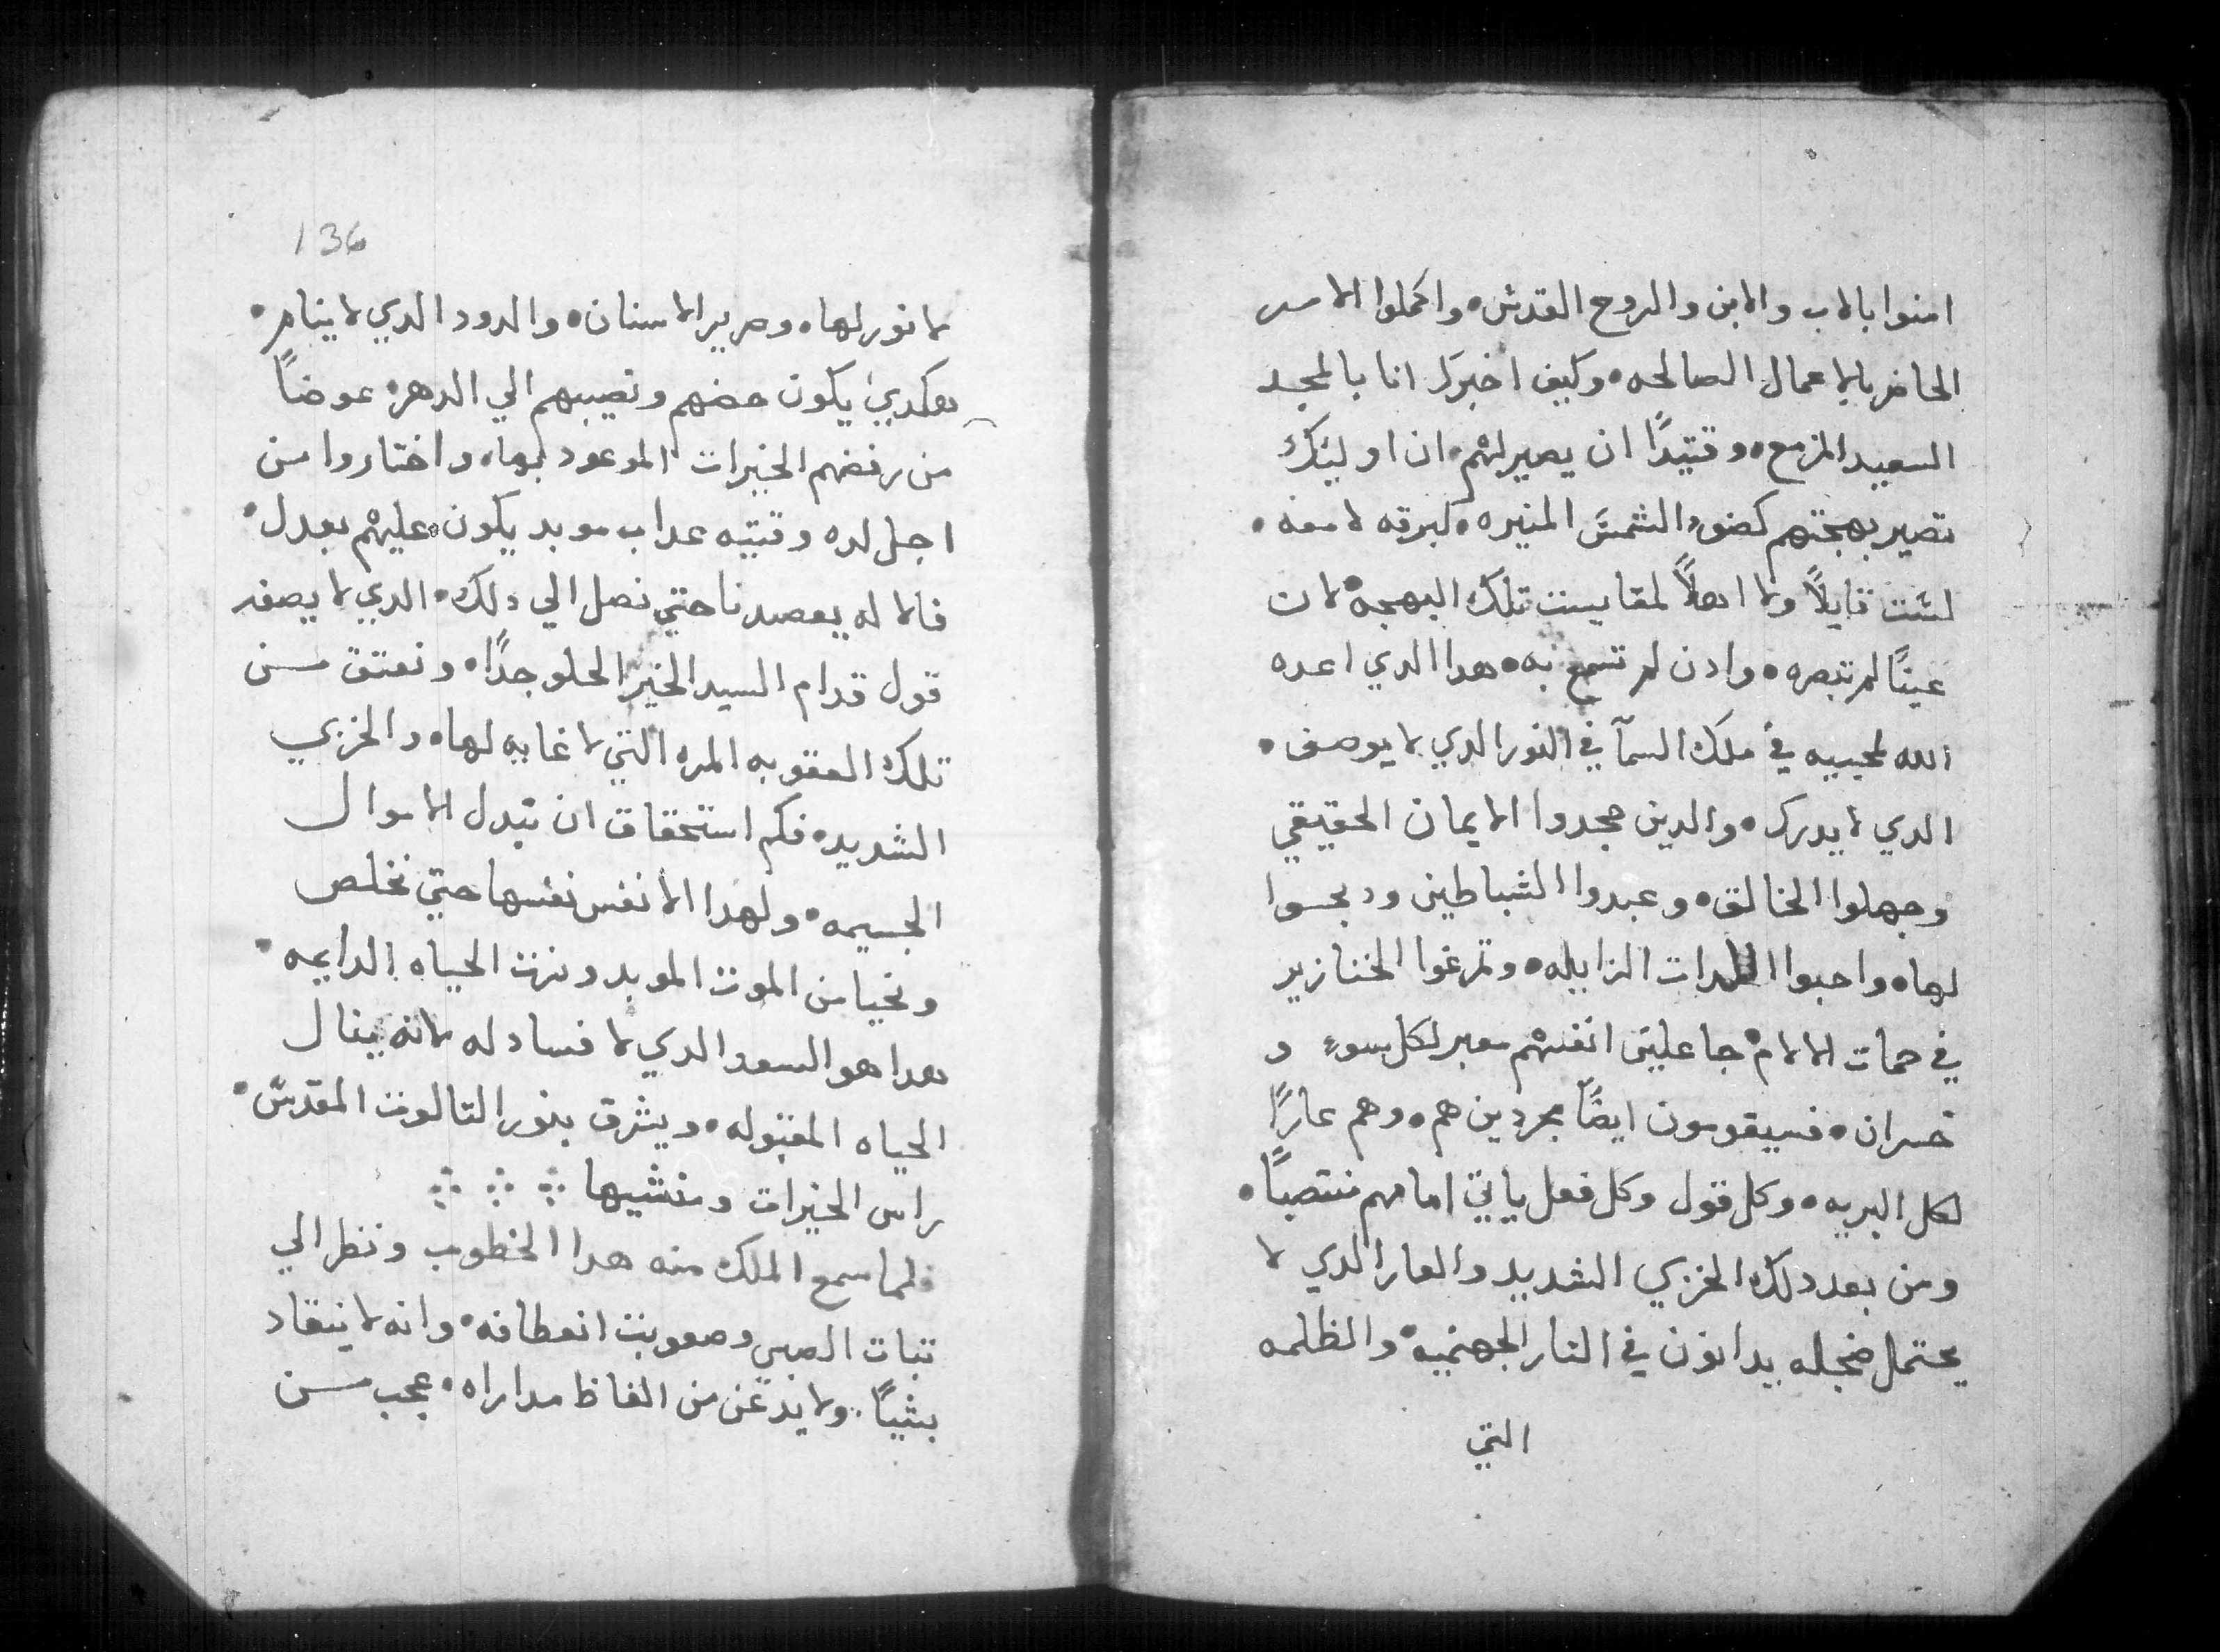 امنوا بالاب والابن والروح القدس٠ واكملوا الامر
الحاضر بالاعمال الصالحه٠ وكيف اخبرك انا بالمجد
السعيد المزمع٠ وقتيدًا ان يصير لهم٠ ان اوليئك
تصير بهجتهم كضوء الشمس المنيره٠ كبرقه لامعه٠
لست قايلًا ولا اهلًا لمقايست تلك البهجه٠ لان
عينًا لم تبصره٠ وادن لم تسمع به٠ هدا الدي اعده
الله لمحبيه في ملك السمآ في النور الدي لا يوصف٠
الدي لا يدرك٠ والدين جحدوا الايمان الحقيقي
وجهلوا الخالق٠ وعبدوا الشياطين ودبحوا
لها٠ واحبوا اللدات الزايله٠ وتمرغوا الخنازير
في حمات الالام٠ جاعلين انفسهم معبر لكل سوءٍ و
خسران٠ فسيقومون ايضًا مجردين هم٠ وهم عارًا
لكل البريه٠ وكل قول وكل فعل ياتي امامهم منتصبًا٠
ومن بعد دلك الخزي الشديد والعار الدي لا
يحتمل خجله يدانون في النار الجهنميه٠ والظلمه
التي
136
لا نور لها٠ وصرير الاسنان٠ والدود الدي لا ينام٠
هكدي يكون حضهم ونصيبهم الي الدهر٠ عوضًا
من رفضهم الخيرات الموعود بها٠ واختاروا من
اجل لده وقتيه عداب موبد يكون عليهم بعدل٠
فالاله يعضدنا حتي نصل الي دلك٠ الدي لا يصفه
قول قدام السيد الخير الحلو جدًا٠ ونعتق من
تلك العقوبه المره التي لا غايه لها٠ والخزي
الشديد٠ فكم استحقاق ان تبدل الاموال
الجسيمه٠ ولهدا الانفس نفسها حتي نخلص
ونحيا من الموت الموبد ونرت الحياه الدايمه٠
هدا هو السعد الدي لا فساد له لانه ينال
الحياه المقبوله٠ ويشرق بنور التالوت المقدس٠
راس الخيرات ومنشيها
فلما سمع الملك منه هدا الخطوب ونظر الي
تبات الصبي وصعوبت انعطافه٠ وانه لا ينقاد
بشيًا٠ ولا يدعن من الفاظ مداراه٠ عجب من